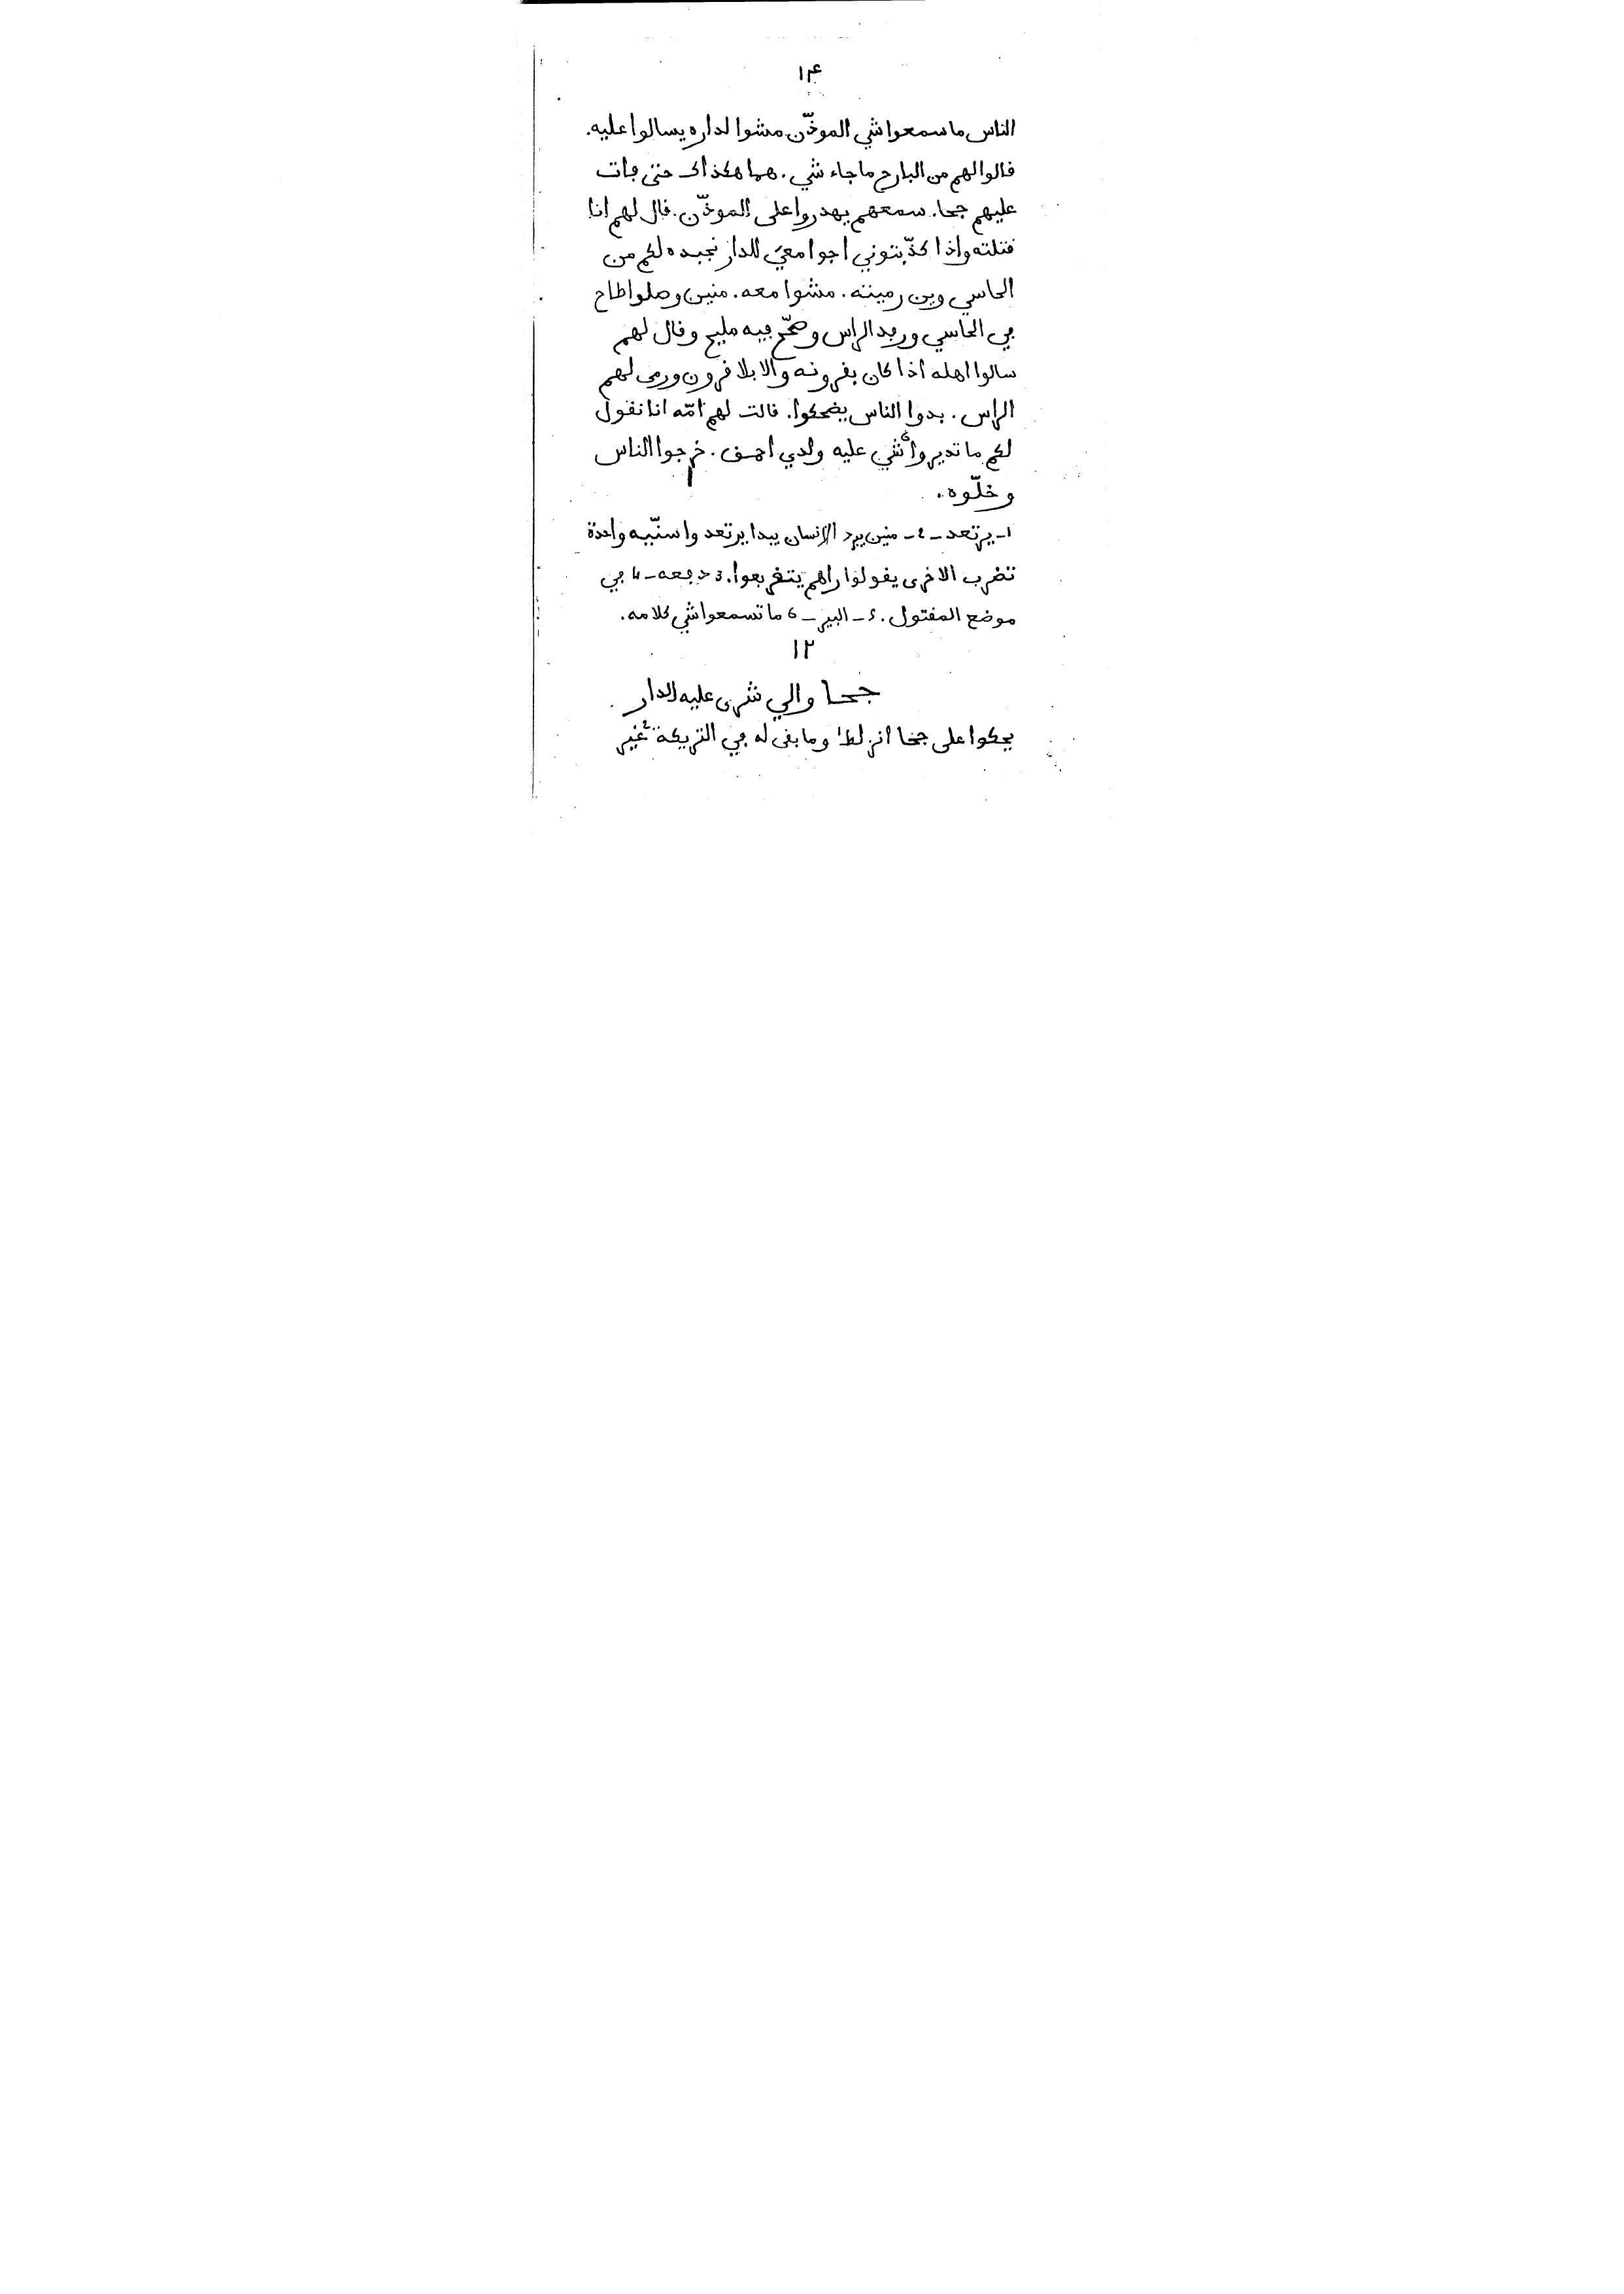 ١٤
الناس ما سمعوا شي الموذّن مشوا لداره يسالوا عليه.
فالوا لهم من البارح ما جاء شي. هما هكذاك حتى ڢات
عليهم جحا. سمعهم يهدروا على الموذّن. فال لهم انا
فتلته واذا كذّبتوني اجوا معي للدار نجبده لكم من
الحاسي وين رميته. مشوا معه. منين وصلوا طاح
ڢي الحاسي وربد الراس وصحّح ڢيه مليح وفال لهم
سالوا اهله اذا كان بفرونه والا بلا فرون ورمى لهم
الراس. بدوا الناس يضحكوا. فالت لهم امّه انا نفول
لكم ما تديروا شي عليه ولدي احمف. خرجوا الناس
وخلّوه.
١- يرتعد - ٤- منين يبرد الإنسان يبدا يرتعد واسنّيه واحدة
تضرب الاخرى يفولوا راهم يتفربعوا. 3 دڢعه - 4 ڢي
موضع المفتول. 5 - البير - 6 ما تسمعوا شي كلامه.
١٢
جحا والي شرى عليه الدار
يحكوا على جحا انزلط¹ وما بفى له ڢي التريكة² غير